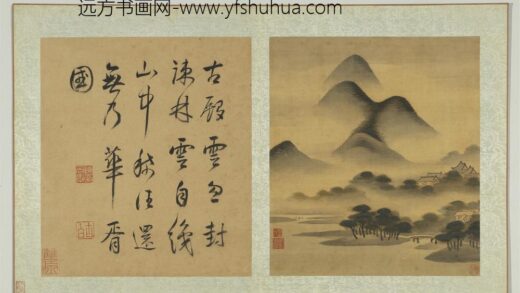 远方书画网- www.yfshuhua.com
古殿雲封
疎林雲自
山中往還
無乃華胥
國